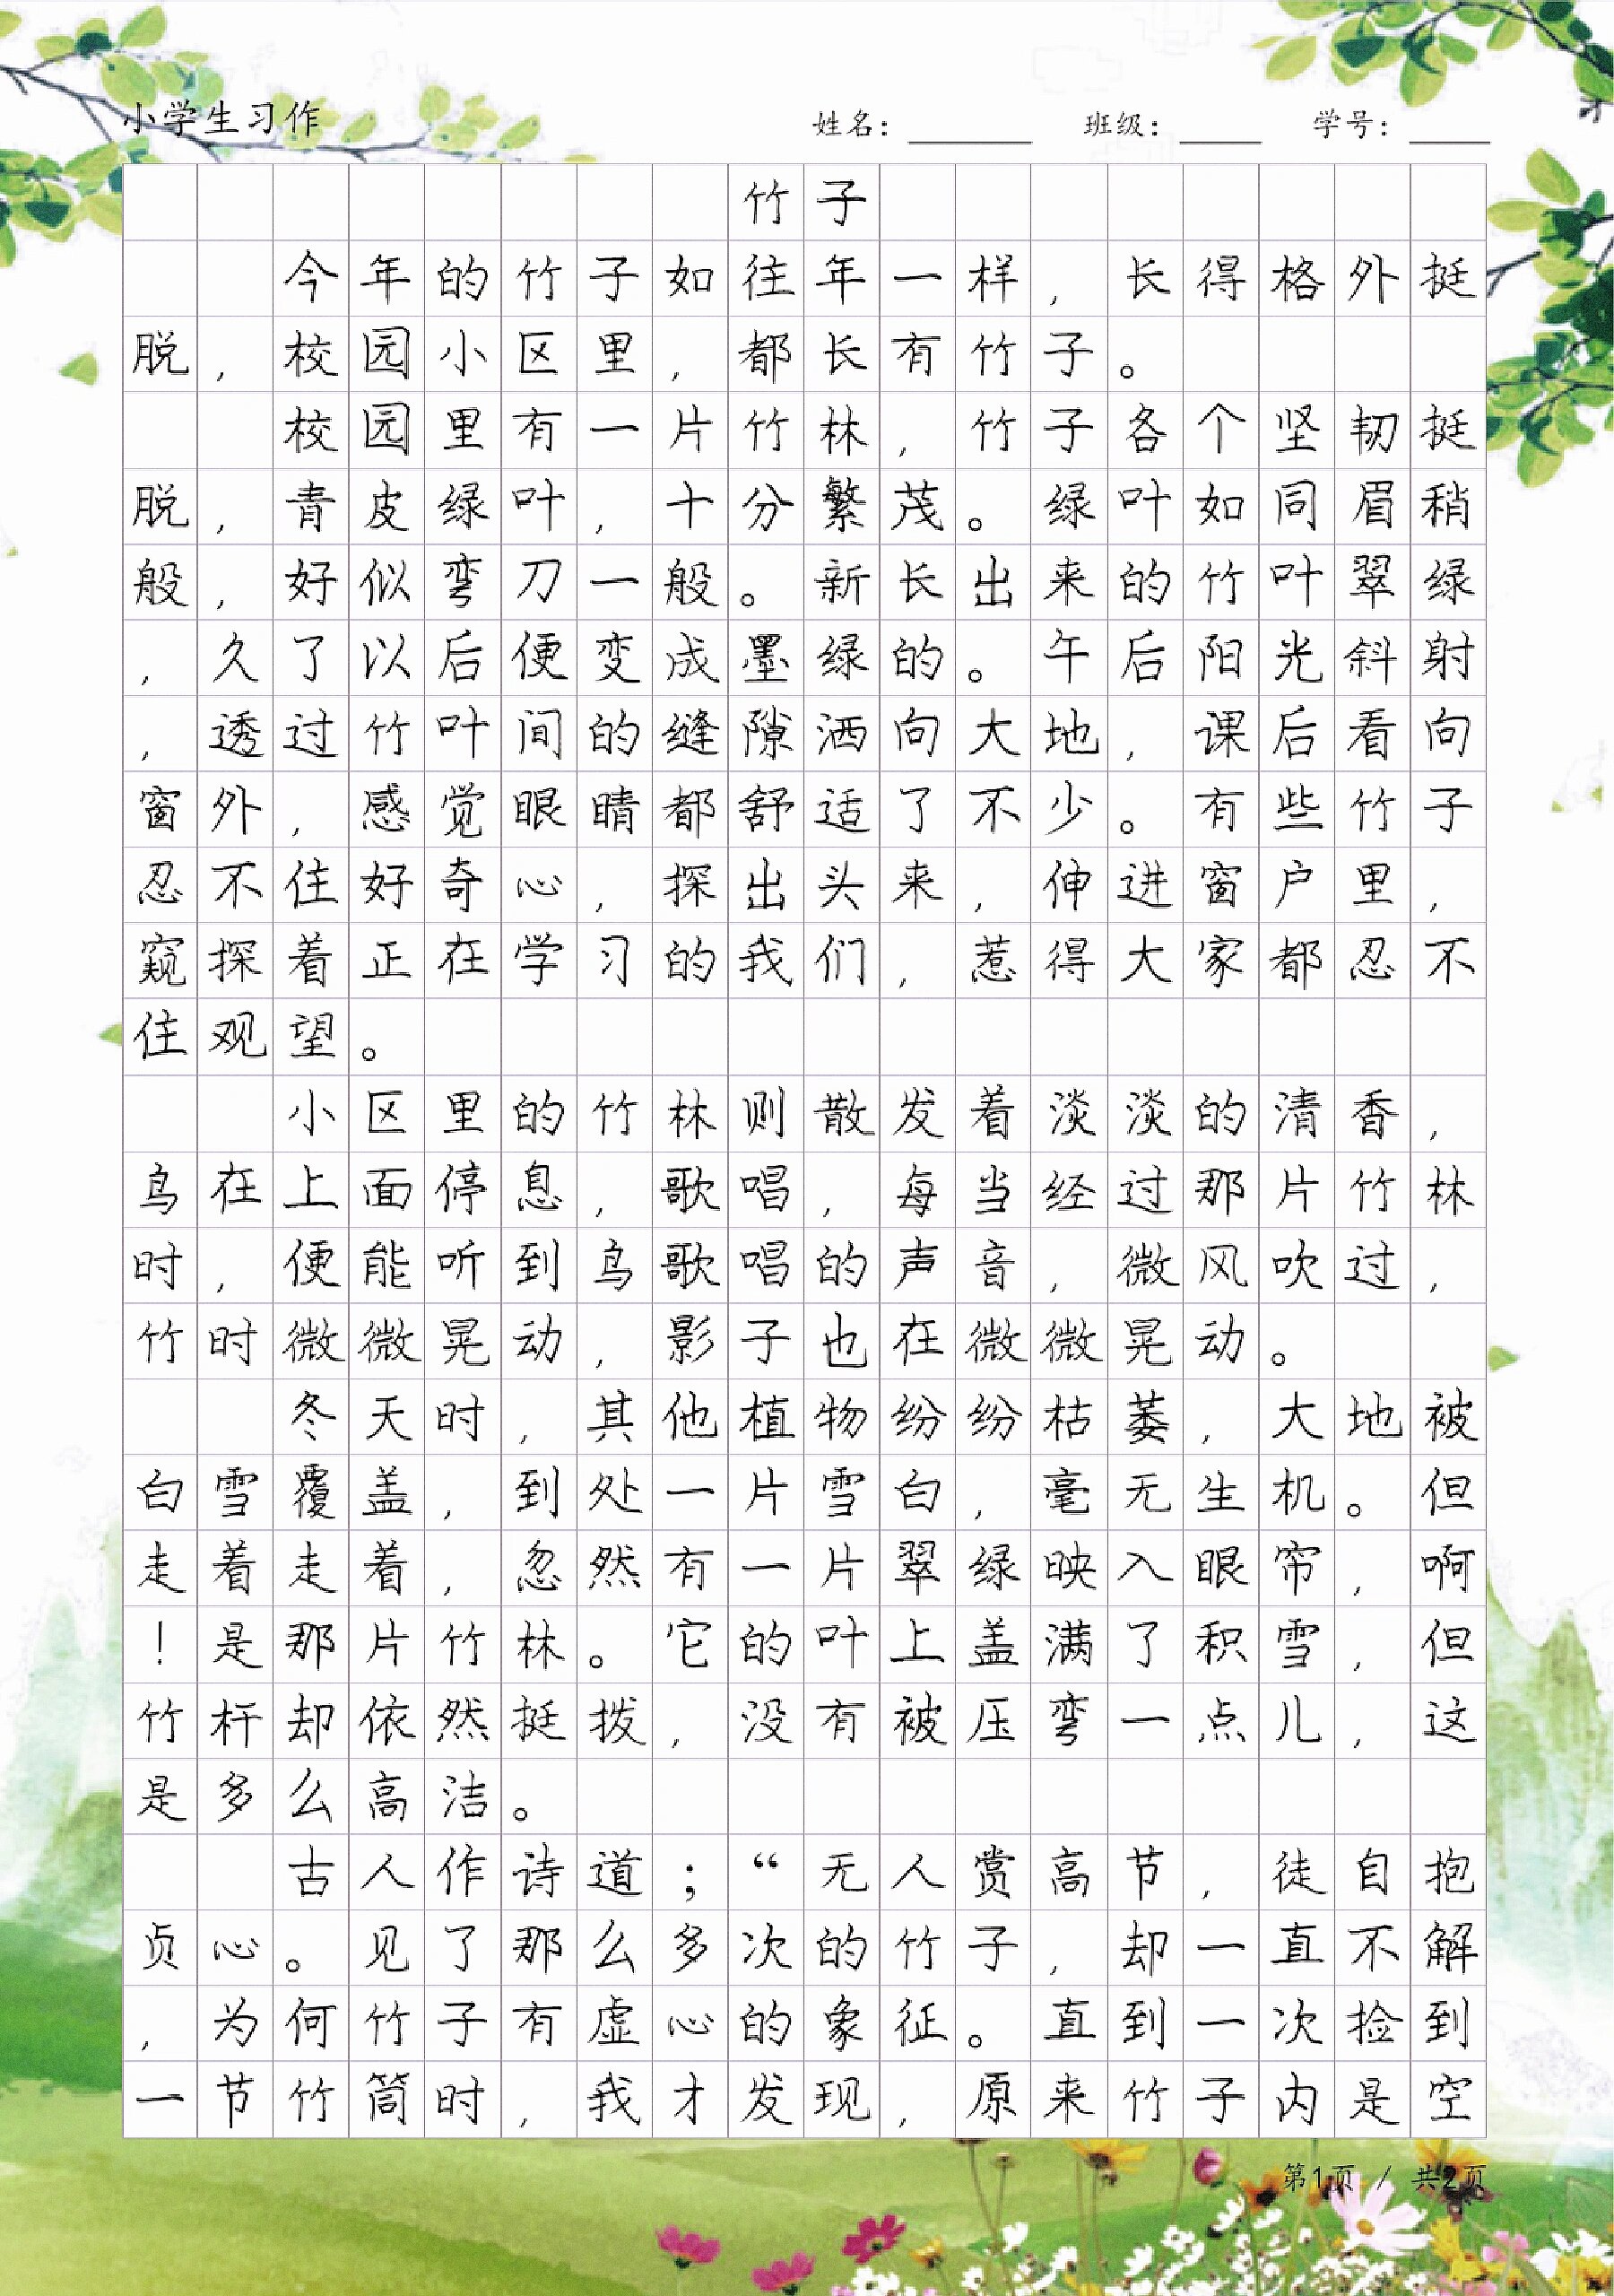 小学生习作 姓名：______ 班级：____ 学号：____
竹子
今年的竹子如往年一样，长得格外挺
脱，校园小区里，都长有竹子。
校园里有一片竹林，竹子各个坚韧挺
脱，青皮绿叶，十分繁茂。绿叶如同眉稍
般，好似弯刀一般。新长出来的竹叶翠绿
，久了以后便变成墨绿的。午后阳光斜射
，透过竹叶间的缝隙洒向大地，课后看向
窗外，感觉眼睛都舒适了不少。有些竹子
忍不住好奇心，探出头来，伸进窗户里，
窥探着正在学习的我们，惹得大家都忍不
住观望。
小区里的竹林则散发着淡淡的清香，
鸟在上面停息，歌唱，每当经过那片竹林
时，便能听到鸟歌唱的声音，微风吹过，
竹时微微晃动，影子也在微微晃动。
冬天时，其他植物纷纷枯萎，大地被
白雪覆盖，到处一片雪白，毫无生机。但
走着走着，忽然有一片翠绿映入眼帘，啊
！是那片竹林。它的叶上盖满了积雪，但
竹杆却依然挺拨，没有被压弯一点儿，这
是多么高洁。
古人作诗道；“无人赏高节，徒自抱
贞心。见了那么多次的竹子，却一直不解
，为何竹子有虚心的象征。直到一次捡到
一节竹筒时，我才发现，原来竹子内是空
第1页 / 共2页